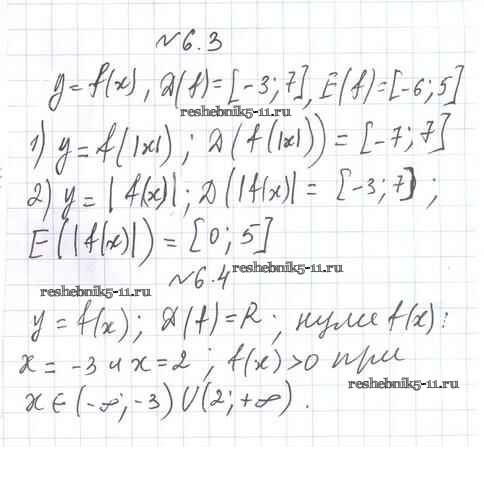 №6.3
y=f(x), D(f)=[-3;7], E(f)=[-6;5]
reshebnik5-11.ru
1) y=f(|x|); D(f(|x|))=[-7;7]
2) y=|f(x)|; D(|f(x)|=[-3;7];
E(|f(x)|)=[0;5]
reshebnik5-11.ru
№6.4
reshebnik5-11.ru
y=f(x); D(f)=R; нули f(x):
x=-3 и x=2; f(x)>0 при
reshebnik5-11.ru
x∈(-∞;-3)∪(2;+∞).